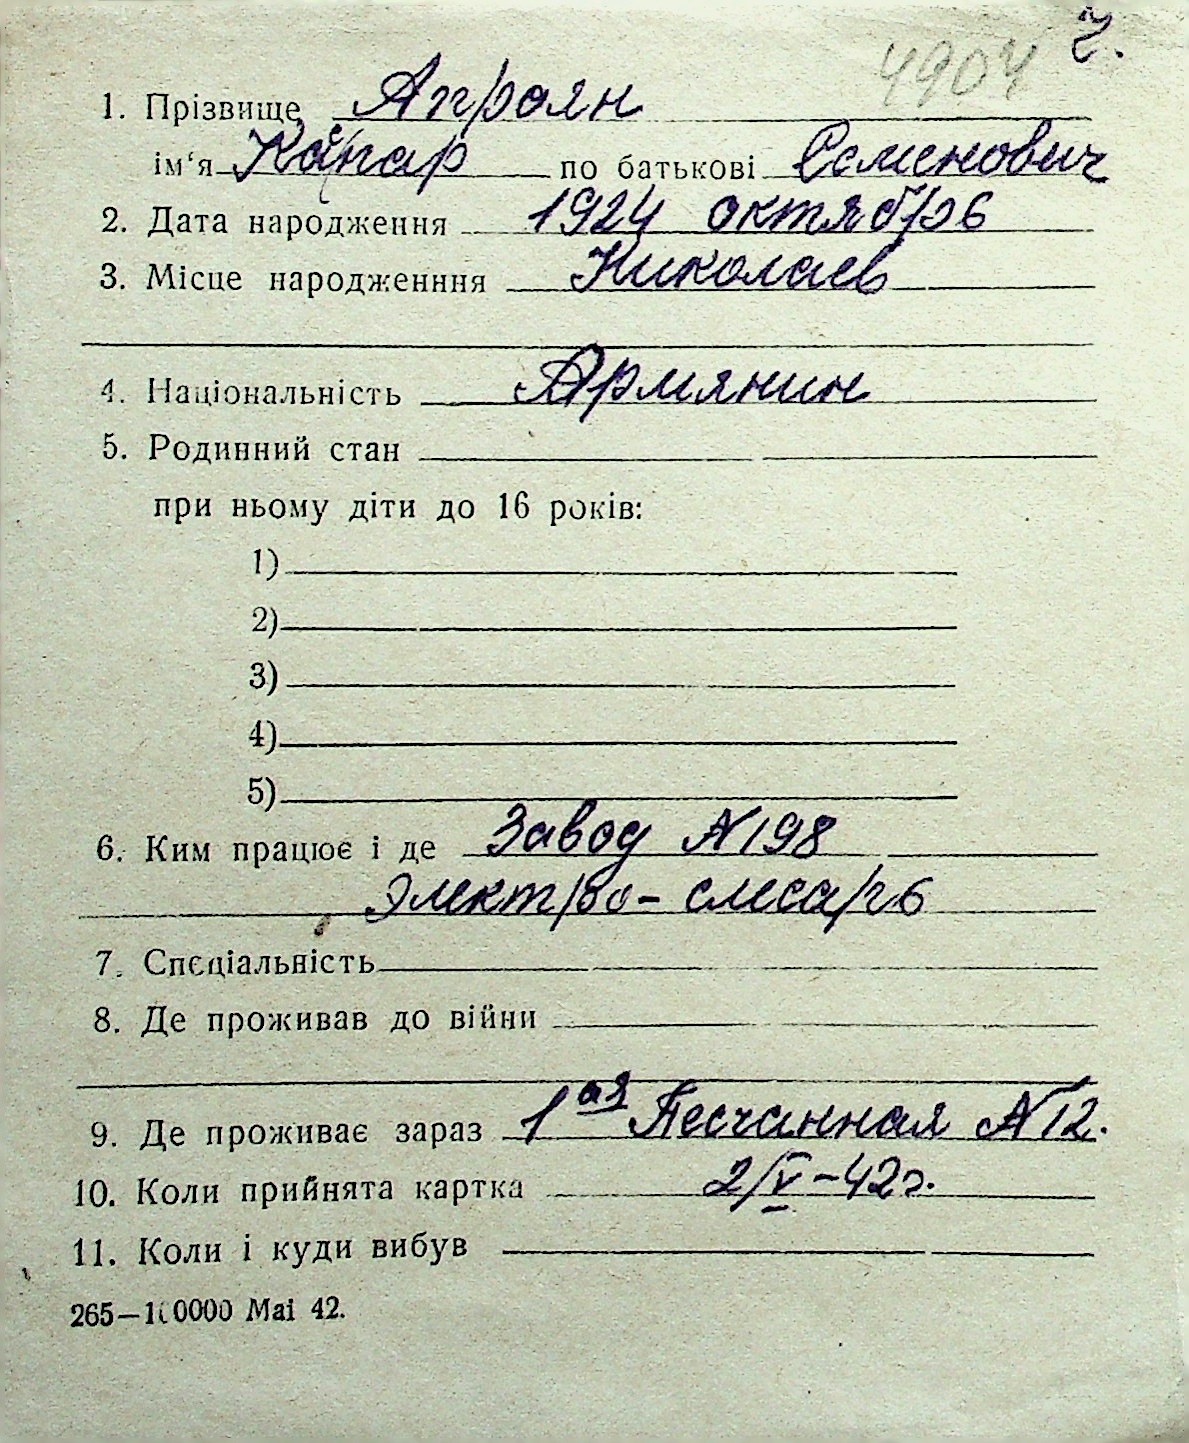 4904 Ч.
1. Прізвище Апроян
ім‘я по батькові Семенович
2. Дата народження 1924 октябрь
3. Місце народженння Николаев
4. Національність Армянин
5. Родинний стан
при ньому діти до 16 років:
1)
2)
3)
4)
5)
6. Ким працює і де Завод №198
Электро-слесарь
7. Спеціальність
8. Де проживав до війни
9. Де проживає зараз 1ая Песчанная №12.
10. Коли прийнята картка 2/V-42г.
11. Коли і куди вибув
265—100000 Mai 42.